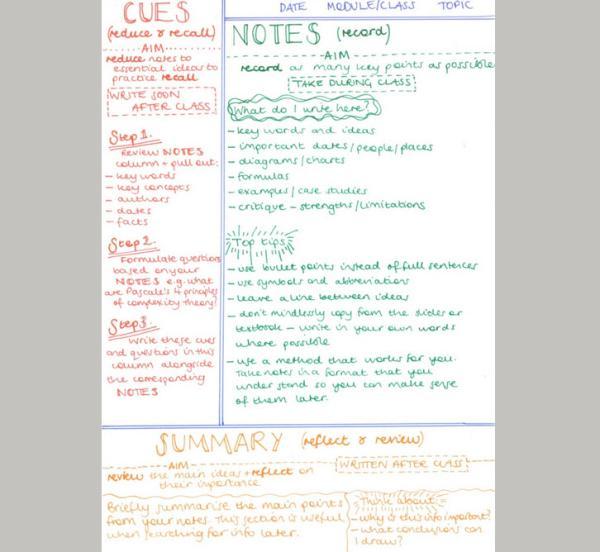 DATE MODULE/CLASS TOPIC
CUES
(reduce & recall)
AIM
reduce notes to
essential ideas to
practice recall
WRITE SOON
AFTER CLASS
Step 1.
Review NOTES
column + pull out:
- key words
- key concepts
- authors
- dates
- facts
Step 2.
Formulate questions
based on your
NOTES e.g. what
are Pascale's 4 principles
of complexity theory?
Step 3.
Write these cues
and questions in this
column alongside
the corresponding
NOTES
NOTES (record)
AIM
record as many key points as possible
TAKE DURING CLASS
What do I write here?
- key words and ideas
- important dates/people/places
- diagrams/charts
- formulas
- examples/case studies
- critique - strengths/limitations
Top tips
- use bullet points instead of full sentences
- use symbols and abbreviations
- leave a line between ideas
- don't mindlessly copy from the slides or
textbook - write in your own words
where possible
- use a method that works for you.
Take notes in a format that you
understand so you can make sense
of them later.
SUMMARY (reflect & review)
AIM
review the main ideas + reflect on
their importance
WRITTEN AFTER CLASS
Briefly summarise the main points
from your notes. This section is useful
when searching for info later.
Think about:
- why is this info important?
- what conclusions can
I draw?